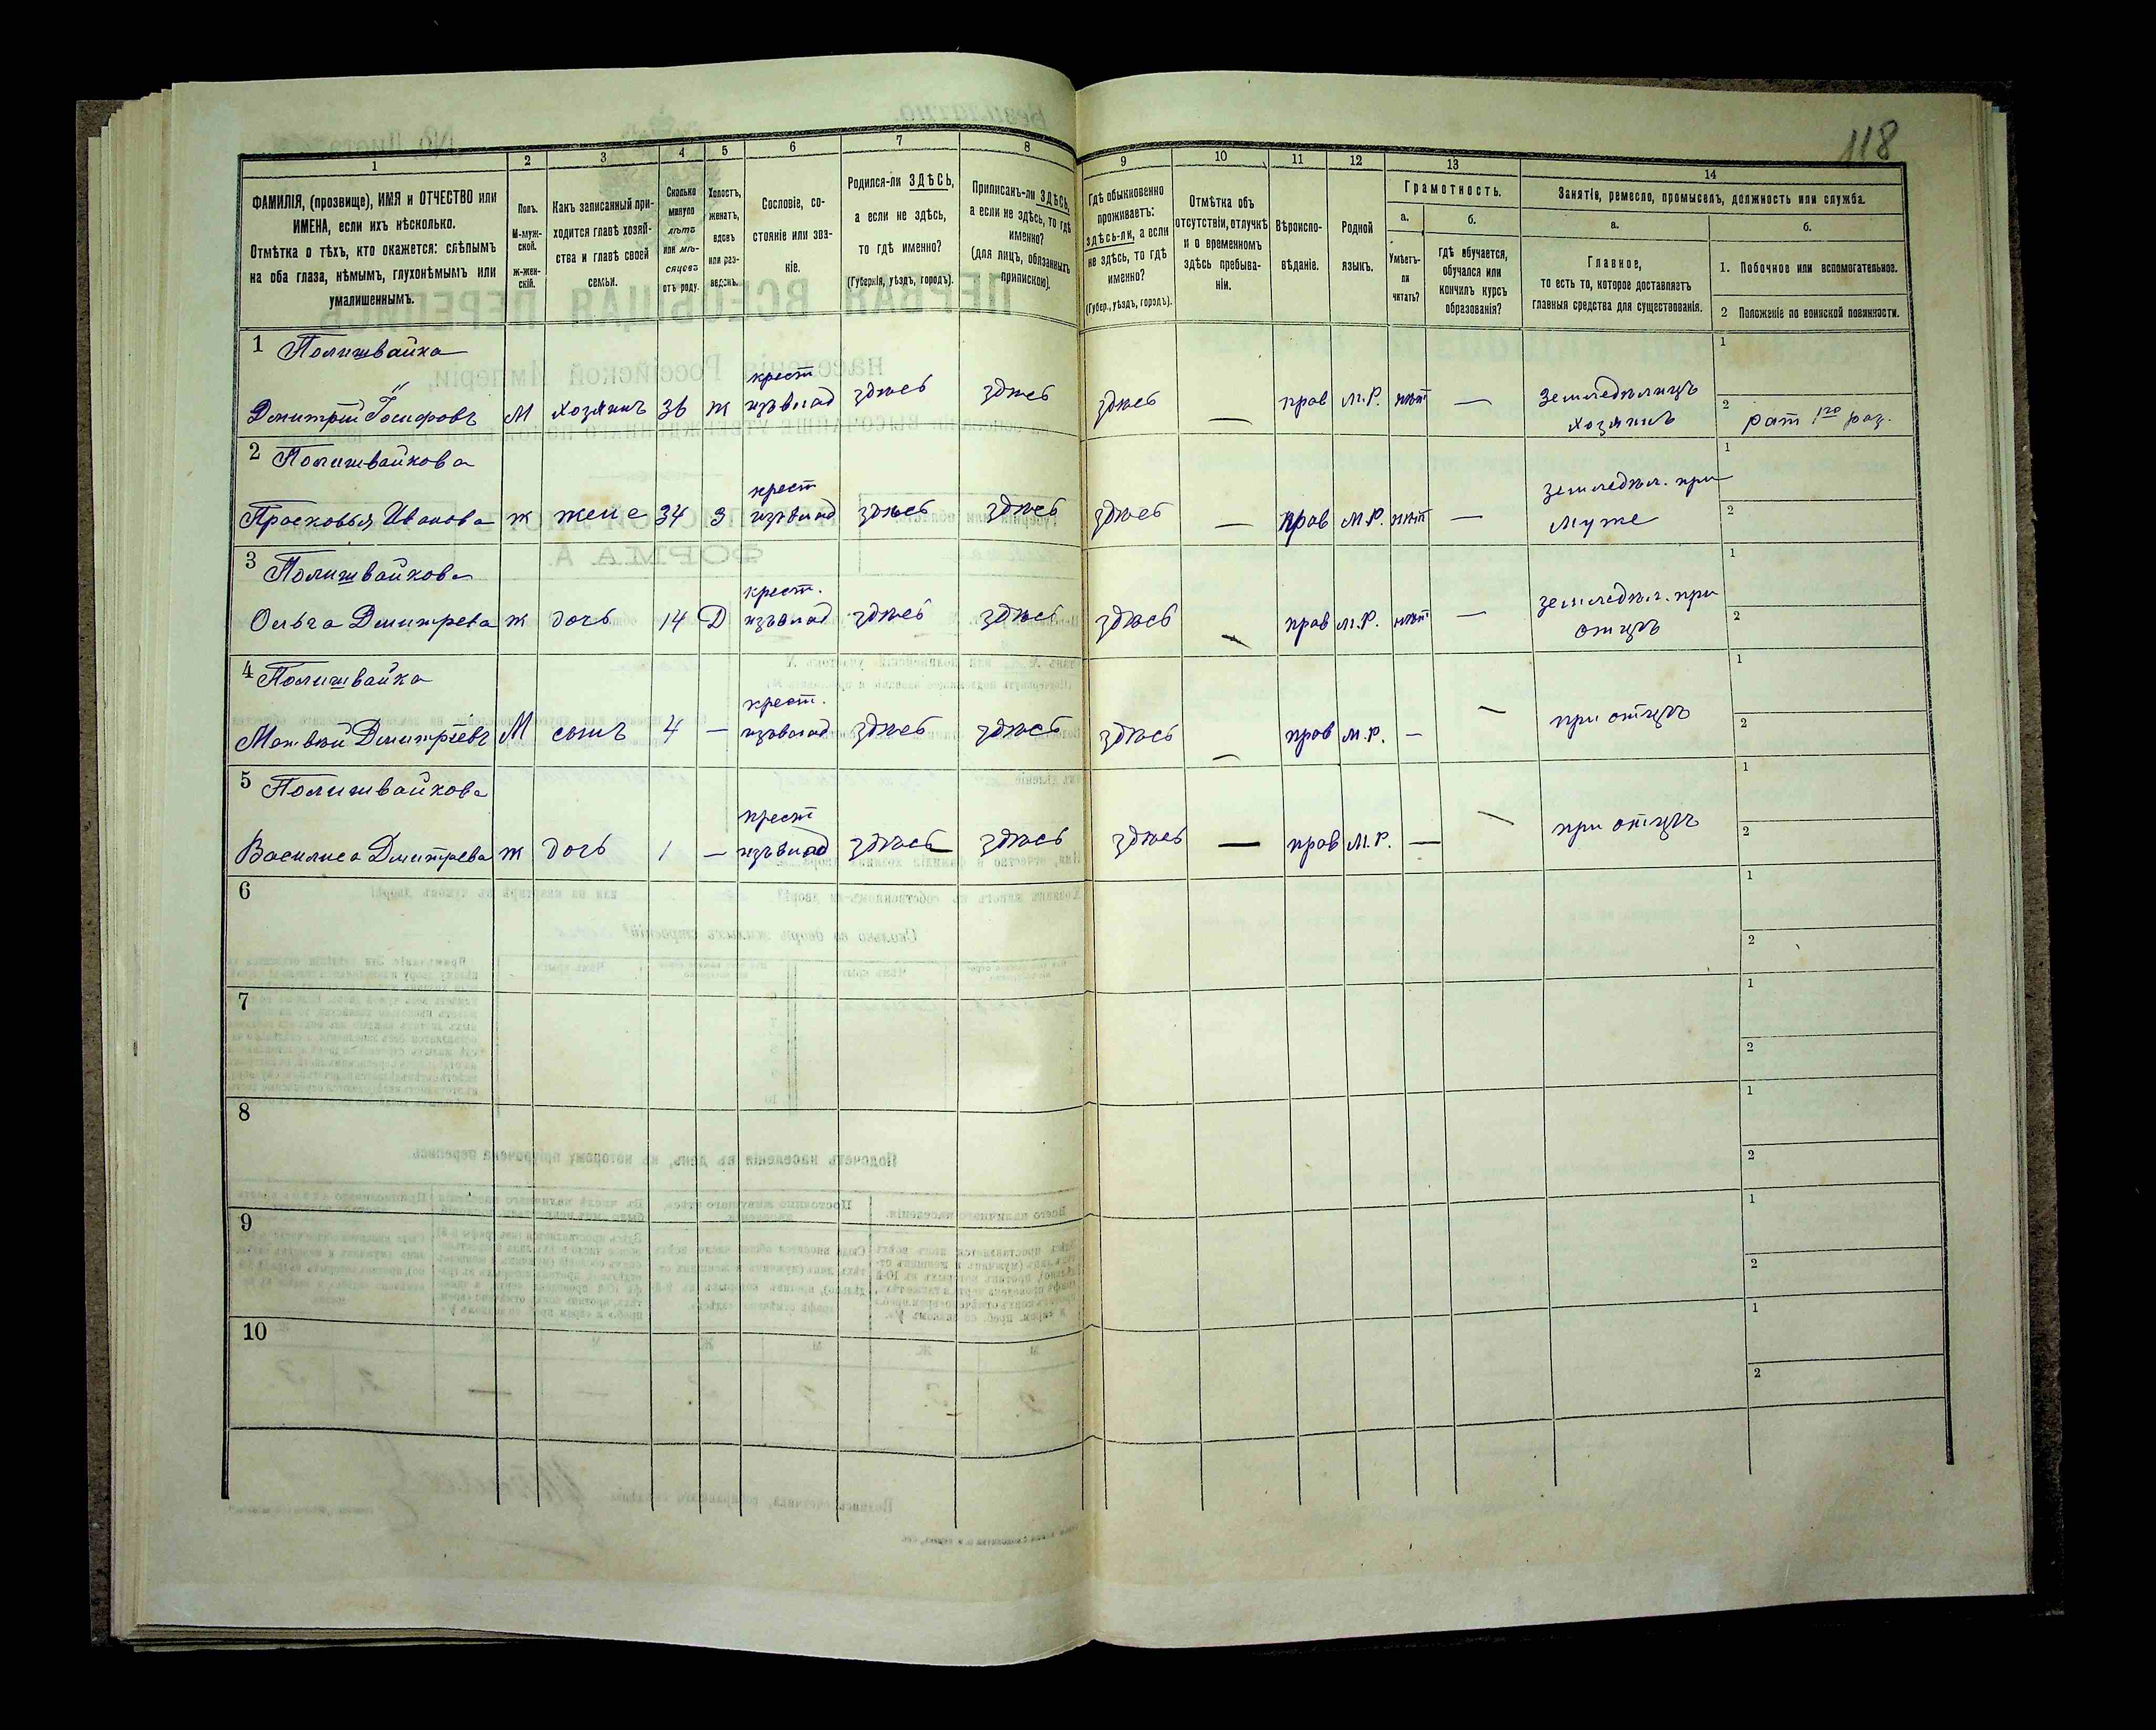 118
1
2
3
4
5
6
7
8
9
10
11
12
13
14
ФАМИЛІЯ, (прозвище), ИМЯ и ОТЧЕСТВО или
ИМЕНА, если ихъ нѣсколько.
Отмѣтка о тѣхъ, кто окажется: слѣпымъ
на оба глаза, нѣмымъ, глухонѣмымъ или
умалишеннымъ.
Полъ.
М-муж-
ской.
Ж-жен-
скій.
Какъ записанный при-
ходится главѣ хозяй-
ства и главѣ своей
семьи.
Сколько
минуло
лѣтъ
или мѣ-
сяцевъ
отъ роду.
Холостъ,
женатъ,
вдовъ
или раз-
веденъ.
Сословіе, со-
стояніе или зва-
ніе.
Родился-ли ЗДѢСЬ,
а если не здѣсь,
то гдѣ именно?
(Губернія, уѣздъ, городъ).
Приписанъ-ли ЗДѢСЬ,
а если не здѣсь, то гдѣ
именно?
(для лицъ, обязанныхъ
припискою).
Гдѣ обыкновенно
проживаетъ:
здѣсь-ли, а если
не здѣсь, то гдѣ
именно?
(Губер., уѣздъ, городъ).
Отмѣтка объ
отсутствіи, отлучкѣ
и о временномъ
здѣсь пребыва-
ніи.
Вѣроиспо-
вѣданіе.
Родной
языкъ.
Грамотность.
а.
Умѣетъ-
ли
читать?
б.
Гдѣ обучается,
обучался или
кончилъ курсъ
образованія?
Занятія, ремесло, промыселъ, должность или служба.
а.
Главное,
то есть то, которое доставляетъ
главныя средства для существованія.
б.
1. Побочное или вспомогательное.
2 Положеніе по воинской повинности.
1 Полишвайка
Дмитрій Іосифовъ М хозяинъ 36 ж крест
изъ влад здѣсь здѣсь здѣсь — прав М.Р. нѣтъ — Земледѣлецъ
хозяинъ
1
2 рат 1го раз.
2 Полишвайкова
Прасковья Иванова ж жена 34 З крест
изъ влад здѣсь здѣсь здѣсь — прав М.Р. нѣтъ — земледѣл. при
муже
1
2
3 Полишвайкова
Ольга Дмитрева ж дочь 14 Д крест.
изъ влад здѣсь здѣсь здѣсь — прав М.Р. нѣтъ — земледѣл. при
отцѣ
1
2
4 Полишвайка
Матвѣй Дмитріевъ М сынъ 4 — крест.
изъ влад здѣсь здѣсь здѣсь — прав М.Р. — — при отцѣ
1
2
5 Полишвайкова
Василиса Дмитрева ж дочь 1 — крест
изъ влад здѣсь здѣсь здѣсь — прав М.Р. — — при отцѣ
1
2
6
1
2
7
1
2
8
1
2
9
1
2
10
1
2